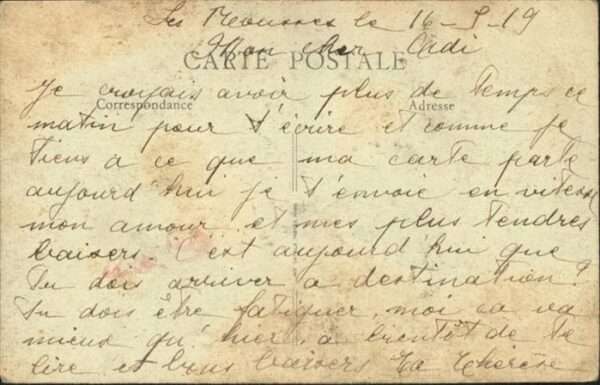 Les Mousses le 16-5-19
Mon cher Cadi
CARTE POSTALE
Je croyais avoir plus de temps ce
Correspondance Adresse
matin pour t'écrire et comme je
tiens a ce que ma carte parte
aujourd hui je t'envoie en vitesse
mon amour et mes plus tendres
baisers. c'est aujourd hui que
tu dois arriver a destination?
Tu dois être fatiguer, moi ca va
mieux qu' hier, a bientôt de te
lire et bons baisers ta Thérèse